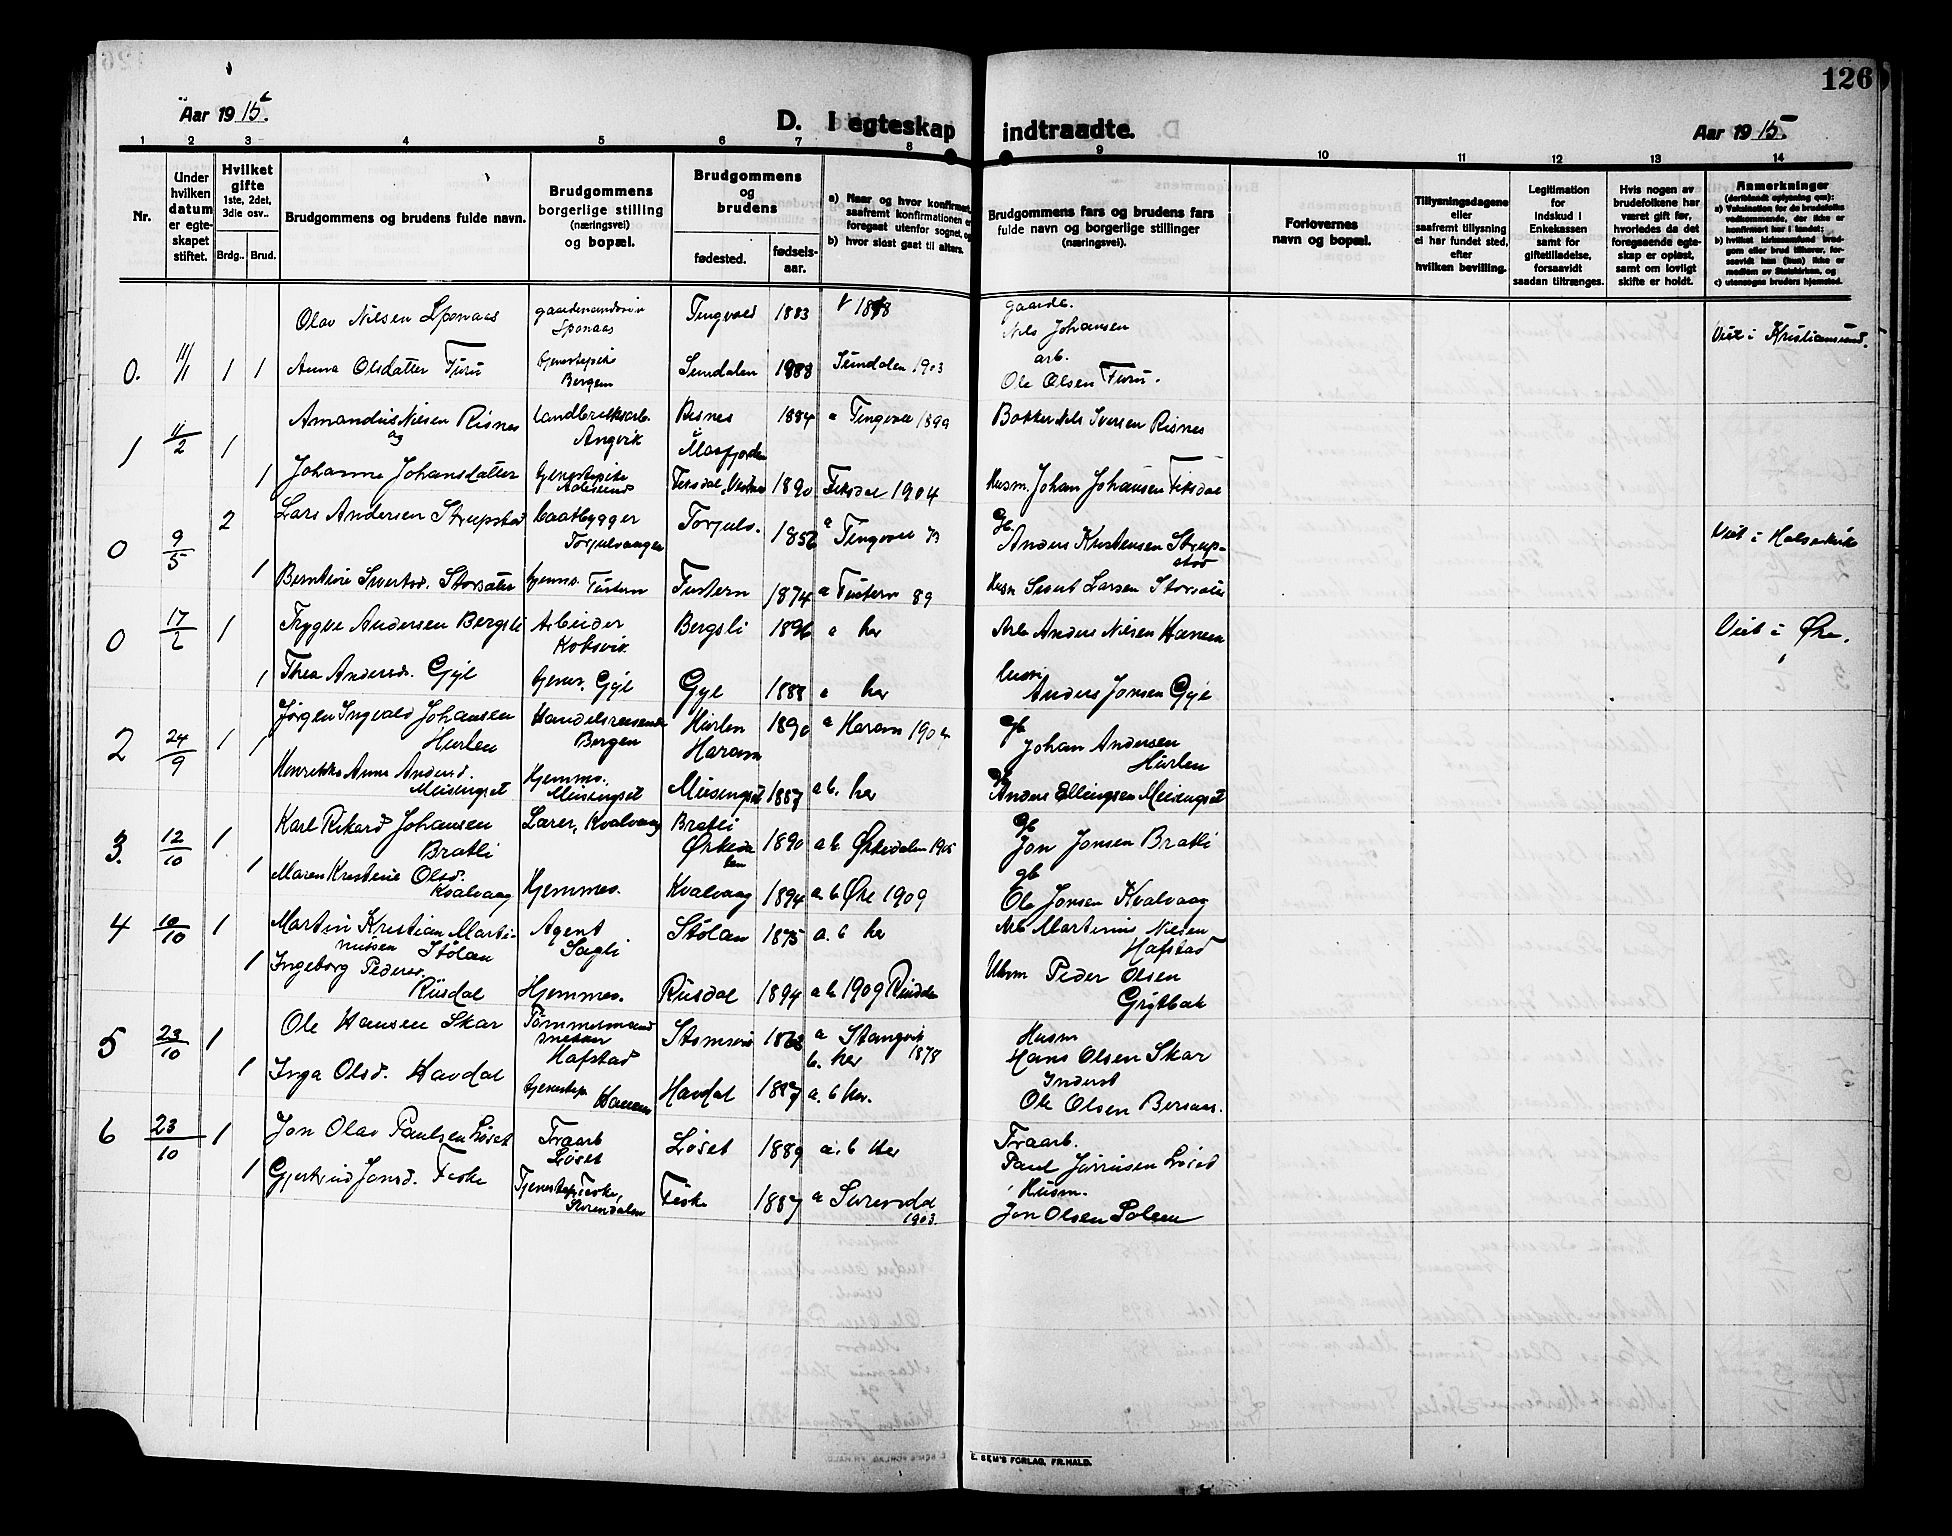 126
Aar 1915.
D. I egteskap indtraadte.
Aar 1915.
1 2 3 4 5 6 7 8 9 10 11 12 13 14
Nr.
Under hvilken datum er egteskapet stiftet.
Hvilket gifte 1ste, 2det, 3die osv..
Brdg. Brud.
Brudgommens og brudens fulde navn.
Brudgommens borgerlige stilling (næringsvei) og bopæl.
Brudgommens og brudens
fødested.
fødselsaar.
a) Naar og hvor konfirmert, saafremt konfirmationen er foregaat utenfor sognet, og
b) hvor sidst gaat til alters.
Brudgommens fars og brudens fars fulde navn og borgerlige stillinger (næringsvei).
Forlovernes navn og bopæl.
Tillysningsdagene eller saafremt tillysning ei har fundet sted, efter hvilken bevilling.
Legitimation for indskud i Enkekassen samt for giftetilladelse, forsaavidt saadan tiltrænges.
Hvis nogen av brudefolkene har været gift før, hvorledes da det foregaaende egteskap er opløst, samt om lovligt skifte er holdt.
Anmerkninger (deriblandt oplysning om):
a) Vaksination for de brudefolks vedkommende, der ikke er konfirmert her i landet;
b) hvilket kirkesamfund brudgom eller brud tilhører, forsaavidt han (hun) ikke er medlem av Statskirken, og
c) utensogns bruders hjemsted.
Olav Nilsen Sponaas Sponaas Tingvold 1883 Gaardb. Nils Johansen Viet i Kristiansund.
0. 11/1 1 1 Anna Olsdatter Furu Tjenestepike Bergem Sundalen 1888 Sundalen 1903 arb. Ole Olsen Furu.
1 11/2 1 Amandus Nilsen Risnes og Landbruksarb. Angvik Risnes i Masfjorden 1884 a Tingvold 1899 Nils Iversen Risnes
1 Johanne Johansdatter Tjenestepike Fiksdal, Vestnes 1890 Fiksdal 1904 Husm. Johan Johansen Fiksdal
0 9/5 2 Lars Andersen Strupstad Baatbygger Torjulvaagen Torjulv. 1856 a Tingvold 73 gb Anders Kristensen Strupstad Viet i Halsevik
1 Berntine Sivertsd. Storsæter Hjemme. Tustern Tustern 1874 a Tustern 89 Husm Sivert Larsen Storsæter
0 17/2 1 Trygve Andersen Bergsli Arbeider Koksvik Bergsli 1896 a her Arb Anders Nilsen Hanem Viet i Øre.
1 Thea Andersd. Gyl Hjemme. Gyl Gyl 1888 a her Husm Anders Jonsen Gyl
2 24/9 1 1 Jørgen Ingvald Johansen Hurlen Handelsreisende Bergen Hurlen Haram 1890 a Haram 1904 gb Johan Andersen Hurlen
Henrikke Anna Andersd. Meisingset Hjemme. Meisingset Meisingset 1887 a b. her gb Anders Ellingsen Meisingset
3. 12/10 1 Karl Rikard Johansen Bratli Lærer, Kvalvaag Bratli Ørkedalen 1890 a b. Ørkedalen 1905 gb Jon Jonsen Bratli
1 Maren Kristine Olsd. Kvalvaag Hjemmev. Kvalvaag 1894 a. b Øre 1909 gb Ole Jonsen Kvalvaag
4 16/10 1 Martin Kristian Martinussen Stølan Agent Sagli Stølan 1875 a. b her Arb Martinus Nilsen Hafstad
1 Ingeborg Pedersd. Riisdal Hjemmev. Riisdal 1894 a b 1909 Rindalen Peder Olsen Grytbak
5 23/10 1 Ole Hansen Skar Tømmermand snekker Hafstad 1863 a Stangvik 1878 b. her Husm Hans Olsen Skar
1 Inga Olsd. Havdal Tjenestep. Hanem Havdal 1887 a. b her. Inderst Ole Olsen
6 23/10 1 Jon Olav Paulsen Løset Traarb Løset Løset 1889 a. b Her Traarb. Paul Løset
1 Gjertrud Jonsd. Feske Tjenestep. Feske, Surendalen Feske 1887 a Surendal 1903 Husm. Jon Olsen Solem
E. SEM'S FORLAG, FR.HALD.